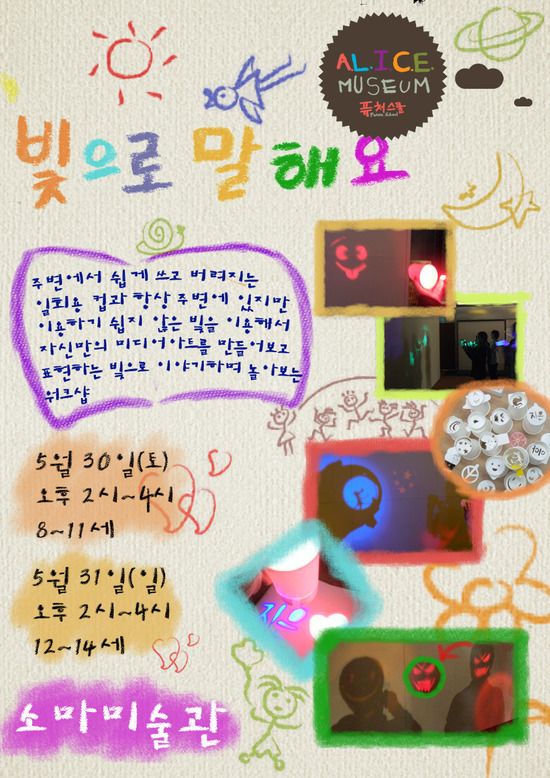 A.L.I.C.E.
MUSEUM
퓨처스쿨
Future School
빛으로 말해요
주변에서 쉽게 쓰고 버려지는
일회용 컵과 항상 주변에 있지만
이용하기 쉽지 않은 빛을 이용해서
자신만의 미디어아트를 만들어보고
표현하는 빛으로 이야기하며 놀아보는
워크샵
5월 30일(토)
오후 2시~4시
8~11세
5월 31일(일)
오후 2시~4시
12~14세
지은
소마미술관